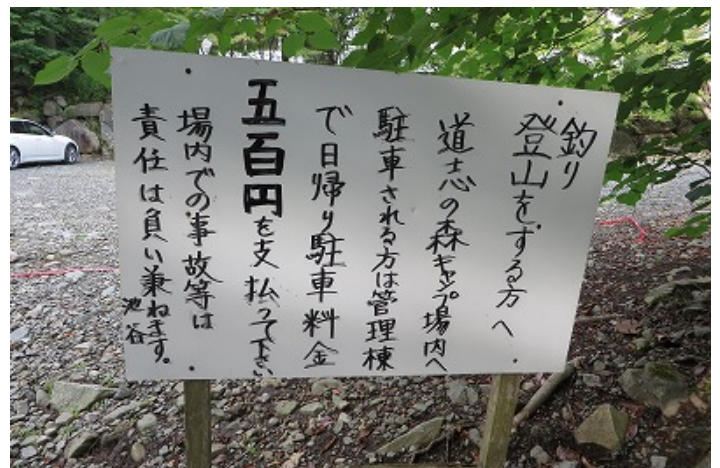 釣り
登山をする方へ
道志の森キャンプ場内へ
駐車される方は管理棟
で日帰り駐車料金
五百円を支払って下さい
場内での事故等は
責任は負い兼ねます。
池谷